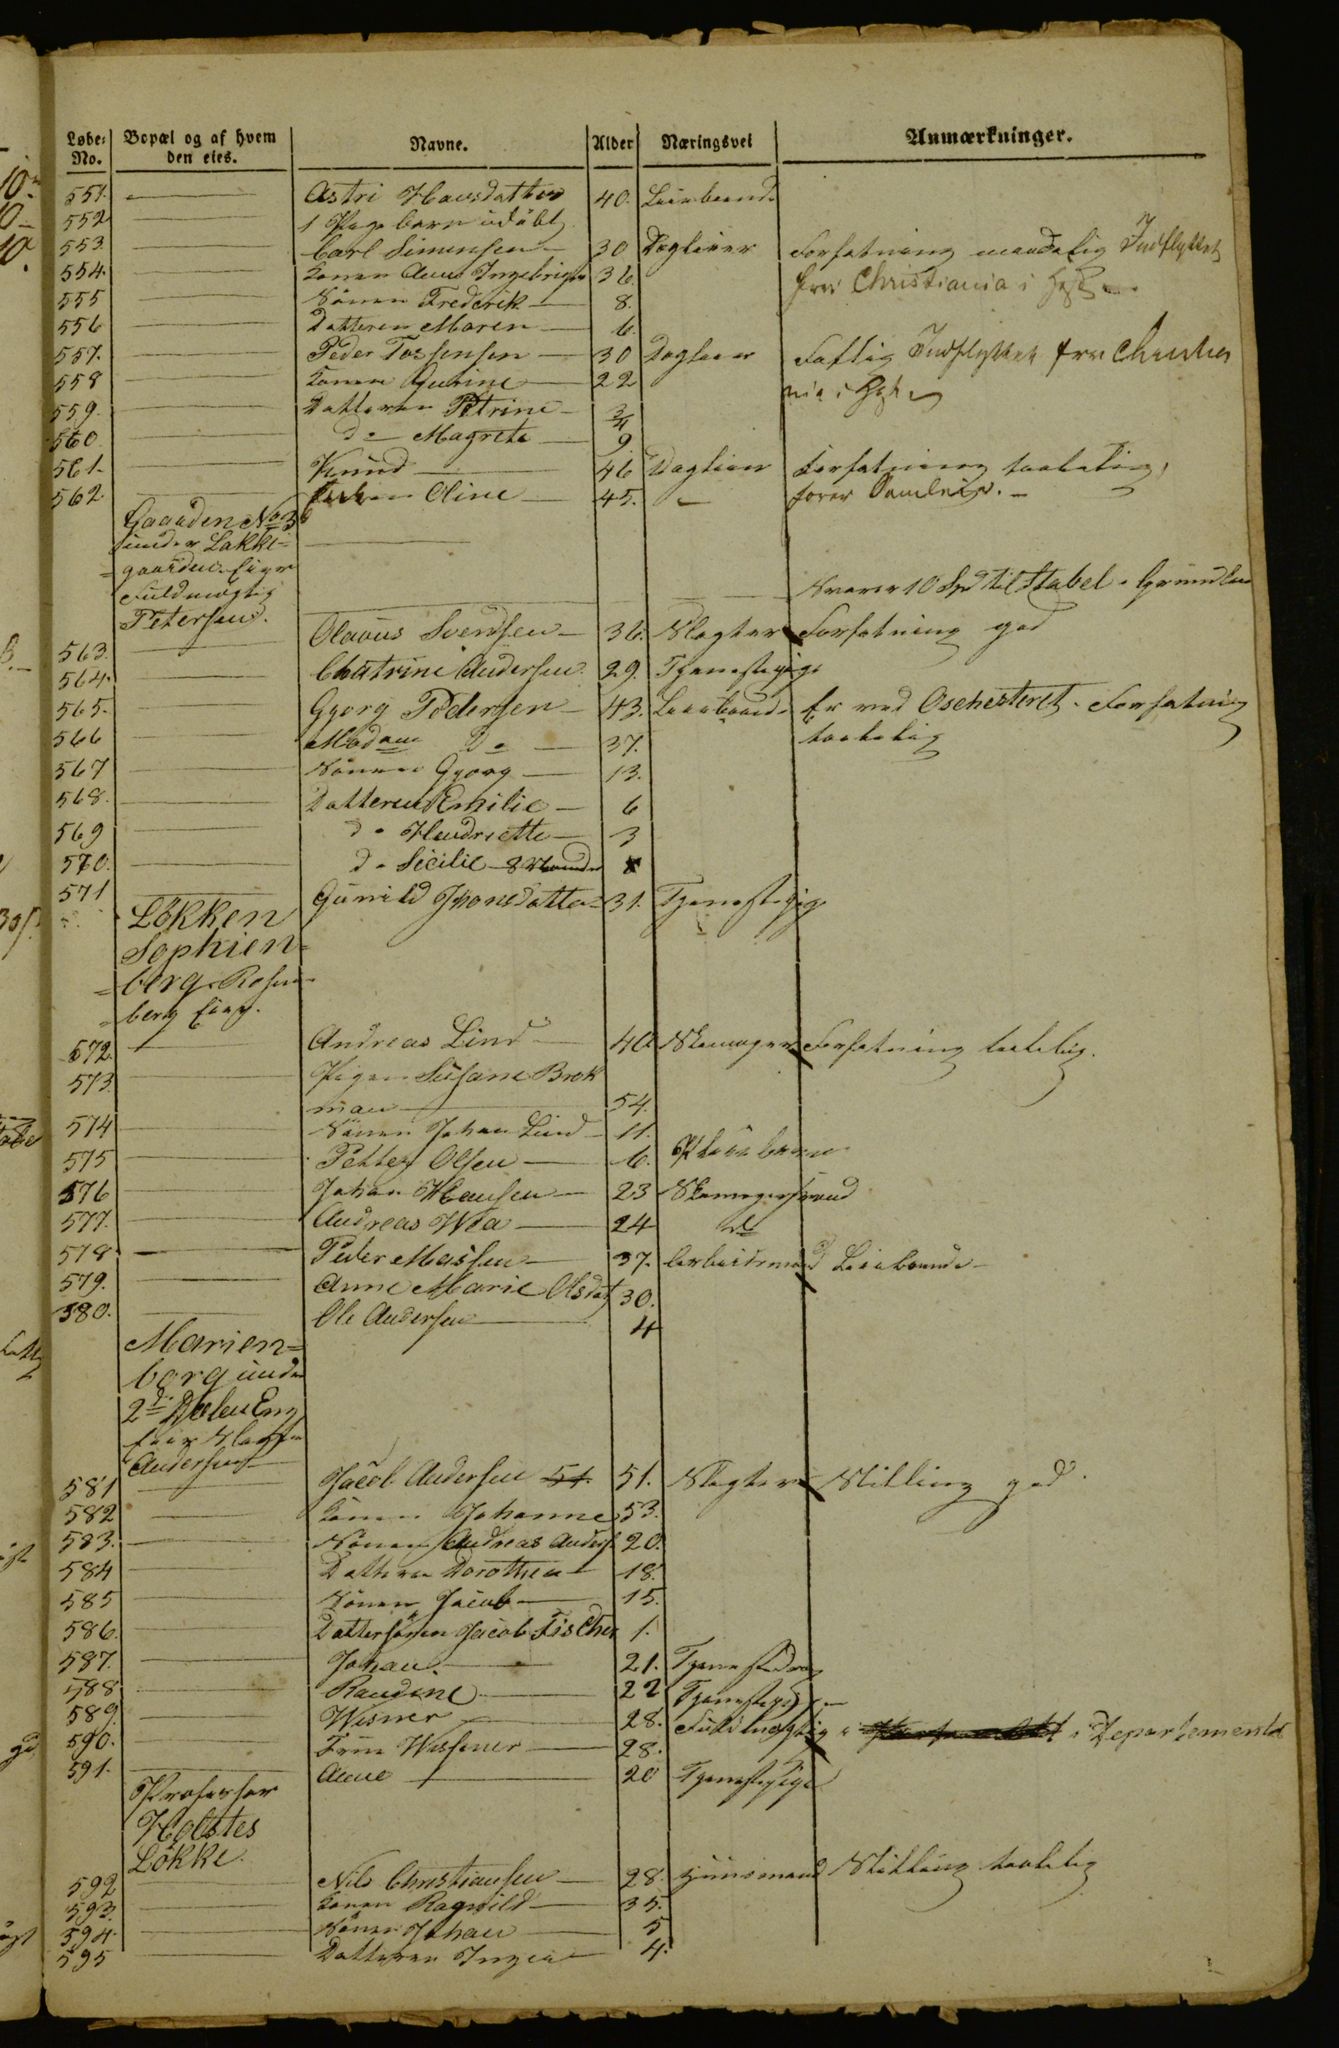 Løbe- No. Bopæl og af hvem den eies. Navne. Alder Næringsvei Anmærkninger.
551. Astri Hansdatter 40. Leieboende
552 1 Pige barn udöbt
553 Carl Simensen 30 Dagleier Forfatning maadelig Indflyttet
554. Konen Anne Ingebrigts 36. fra Christiania i Høst
555 Sönnen Frederik 8.
556 Datteren Maren 6.
557. Peder Tossensen 30 Dagleier Fattig Indflyttet fra Christia
558 Konen Gurine 22 nia i Høst
559. Datteren Petrine 3/4
560 do Magrete 9
561. Knud 46 Dagleier Forfatning taalelig,
562 Oline 45.
Gaarden No 3
under Løkke-
gaarden. Eier
Fuldmægtig
Petersen. Svarer 10 Spd til Stabel i Grundleie
563. Olaves Svendsen 36. Slagter Forfatning god
564. Chatrine Andersen 29. Tjenestepige
565. Gyorg Pedersen 43. Leieboende Er ved Orchesteret. Forfatning
566 Madam do 37. taalelig
567 Sönnen Gyorg 13.
568. Datteren Emilie 6
569 do Hendriette 3
570. do Sicilie 8 Maander
571 Gunild Jonsdatter 31. Tjenestepige
Løkken
Sophien-
berg. Rosen-
berg Eier.
572. Andreas Lind 40 Skomager Forfatning taalelig.
573. Pigen Susane Brok
man 54.
574 Sönnen Johan Lind 11.
575 Petter Olsen 6. Pleiebarn
576 Johan Hansen 23 Skomagersvend
577. Andreas Wea 24 do
578 Peder Massen 37. Arbeidsmand Leieboende
579. Anne Marie Olsdat 30.
580. Ole Andersen 4
Marien-
borg under
2d Dælen Eng
Eier Slagter
Andersen
581 Jacob Andersen 51. 51. Slagter Stilling god
582 Konen Johanne 53.
583. Sönnen Andreas Anders 20.
584 Datteren Dorothea 18.
585 Sönnen Jacob 15.
586. Dattersönnen Jacob Fischer 1.
587. Johan 21. Tjenestedreng
588 Randine 22 Tjenestepige
589. Wisner 28. Fuldmægtig i Departementet
590. Frue Wissner 28.
591. Anne 20 Tjenestepige
Professor
Holstes
Løkke.
592 Nils Christiansen 28. Huusmand Stilling taalelig
593. Konen Ragnild 35.
594. Sönnen Johan 5
595 Datteren Ingea 4.